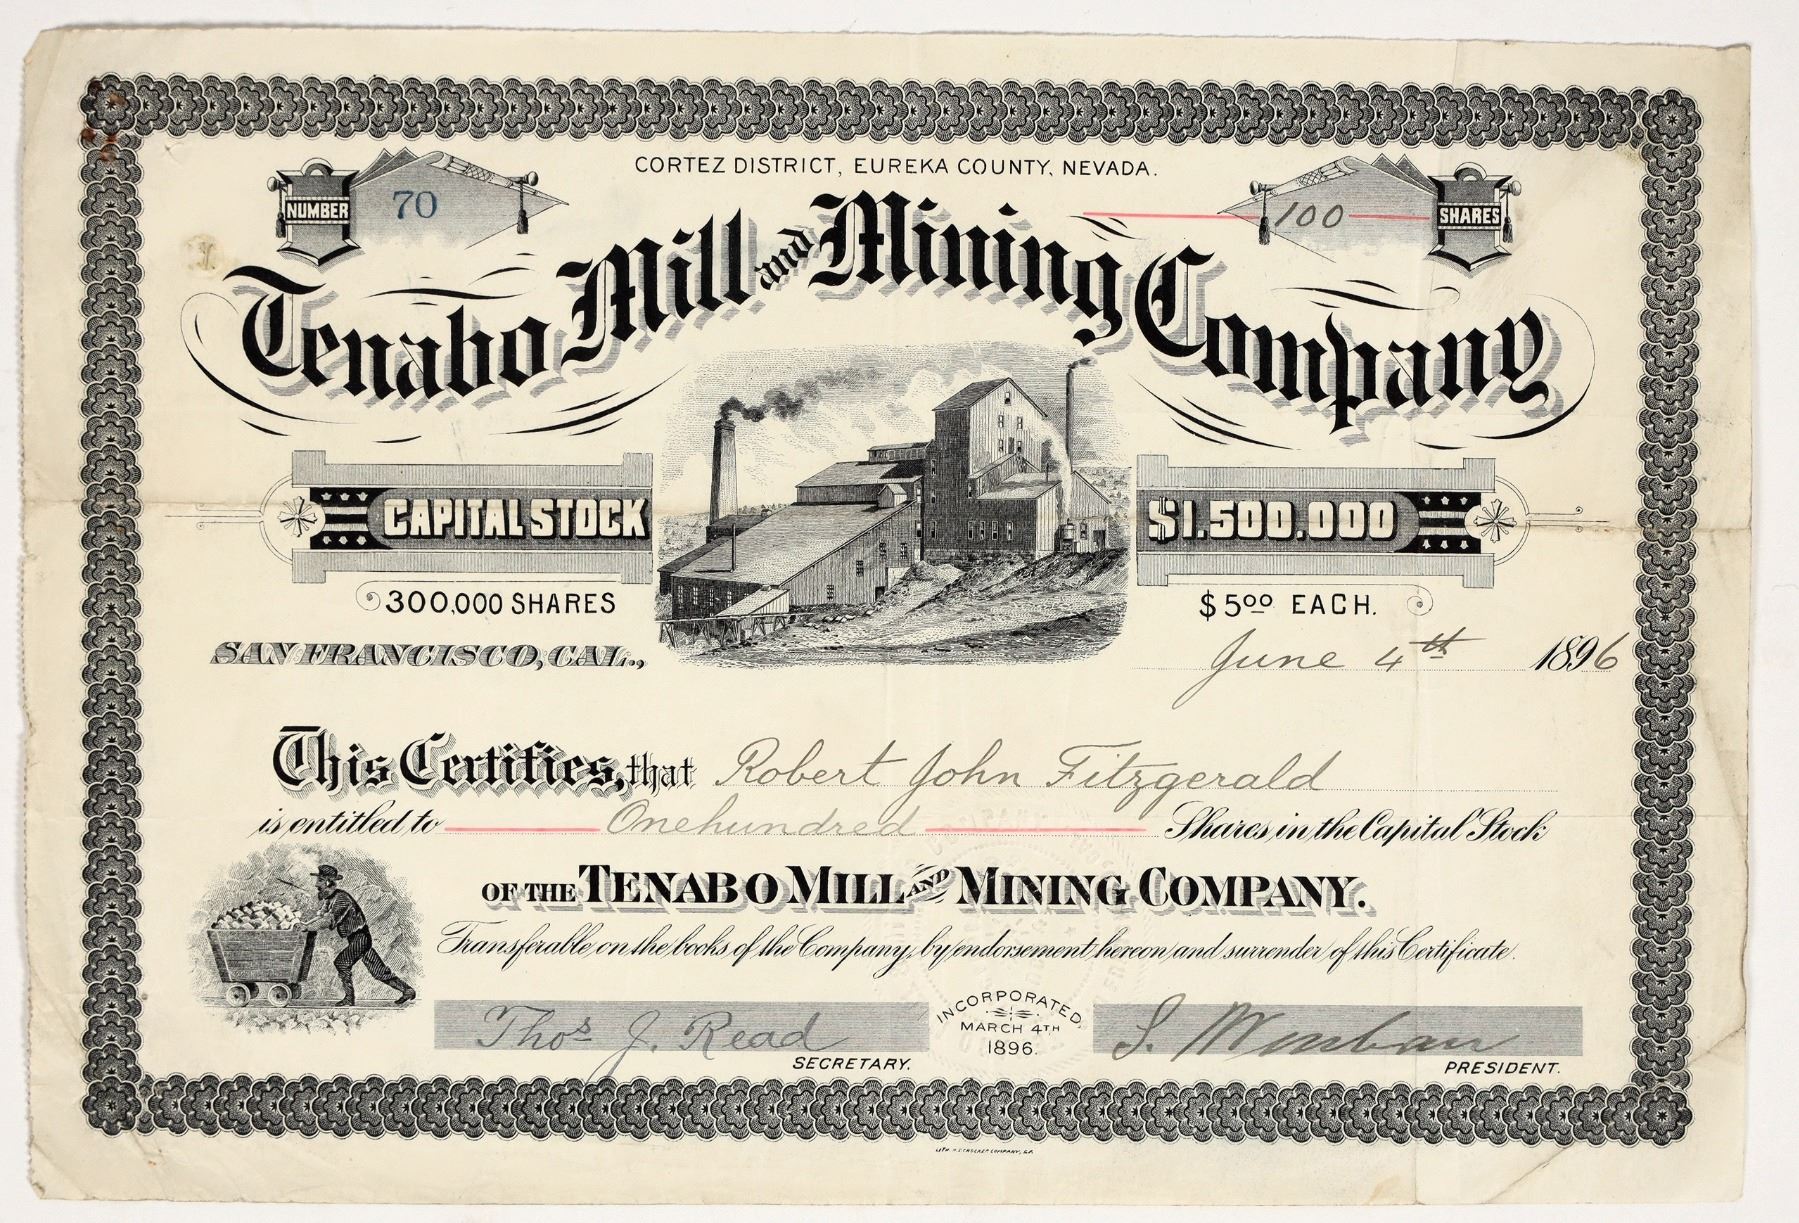 CORTEZ DISTRICT, EUREKA COUNTY, NEVADA.
NUMBER 70
100 SHARES
Tenabo Mill and Mining Company
CAPITAL STOCK $1,500,000
300,000 SHARES $5.00 EACH.
SAN FRANCISCO, CAL., June 4th 1896
This Certifies, that Robert John Fitzgerald
is entitled to Onehundred Shares in the Capital Stock
OF THE TENABO MILL AND MINING COMPANY.
Transferable on the books of the Company, by endorsement hereon and surrender of this Certificate.
Thos J. Read
SECRETARY.
INCORPORATED
MARCH 4TH
1896.
S. Wenban
PRESIDENT.
LITH. H.S. CROCKER COMPANY, S.F.